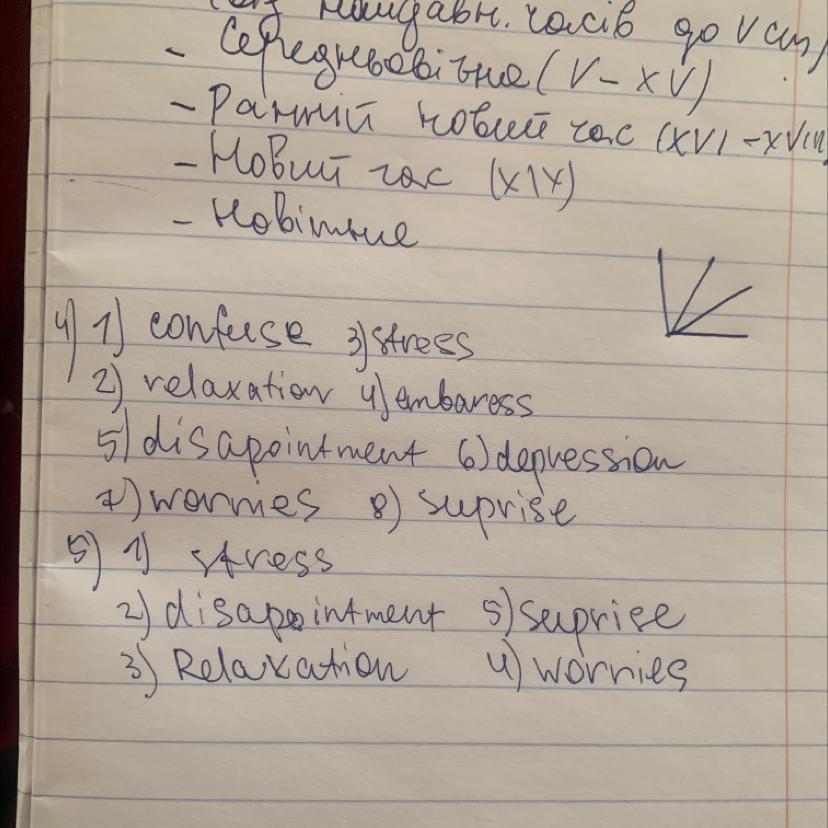 найдавн. часів до V ст)
- Середньовічна (V - XV)
- Ранній новий час (XVI - XVIII)
- Новий час (XIX)
- Новітнє
4) 1) confuse 3) stress
2) relaxation 4) embaress
5) disapointment 6) depression
7) worries 8) suprise
5) 1) stress
2) disapointment 5) suprise
3) Relaxation 4) worries